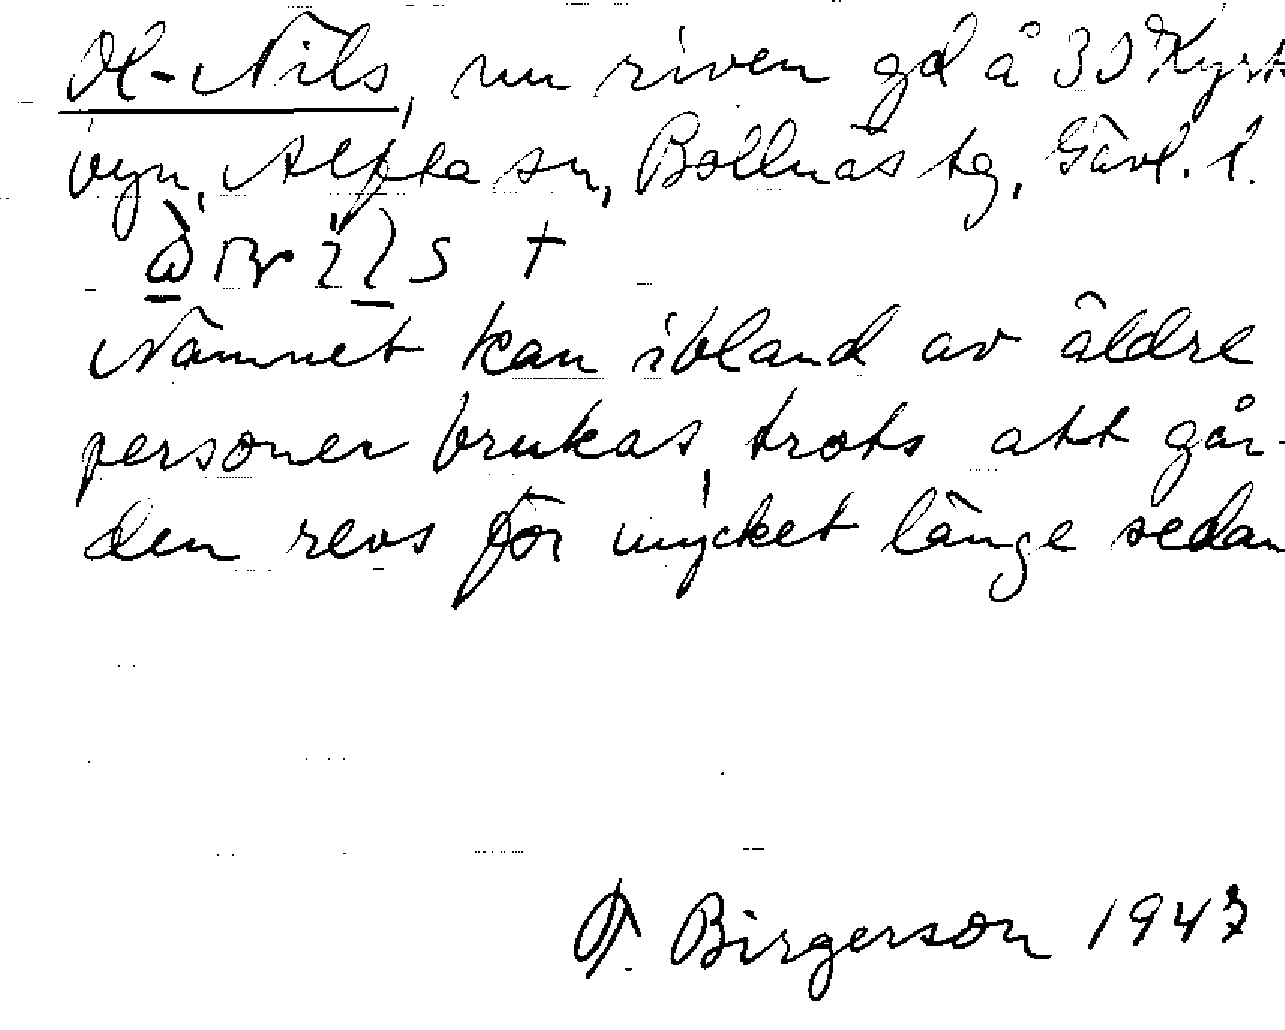 Ol-Nils, nun riven gd å 3 Kyrk
byn, Alfta sn, Bollnäs tg, Gävl. l.
Namnet kan ibland av äldre
personer brukas, trots att går-
den revs för mycket länge sedan
F. Birgerson 1947